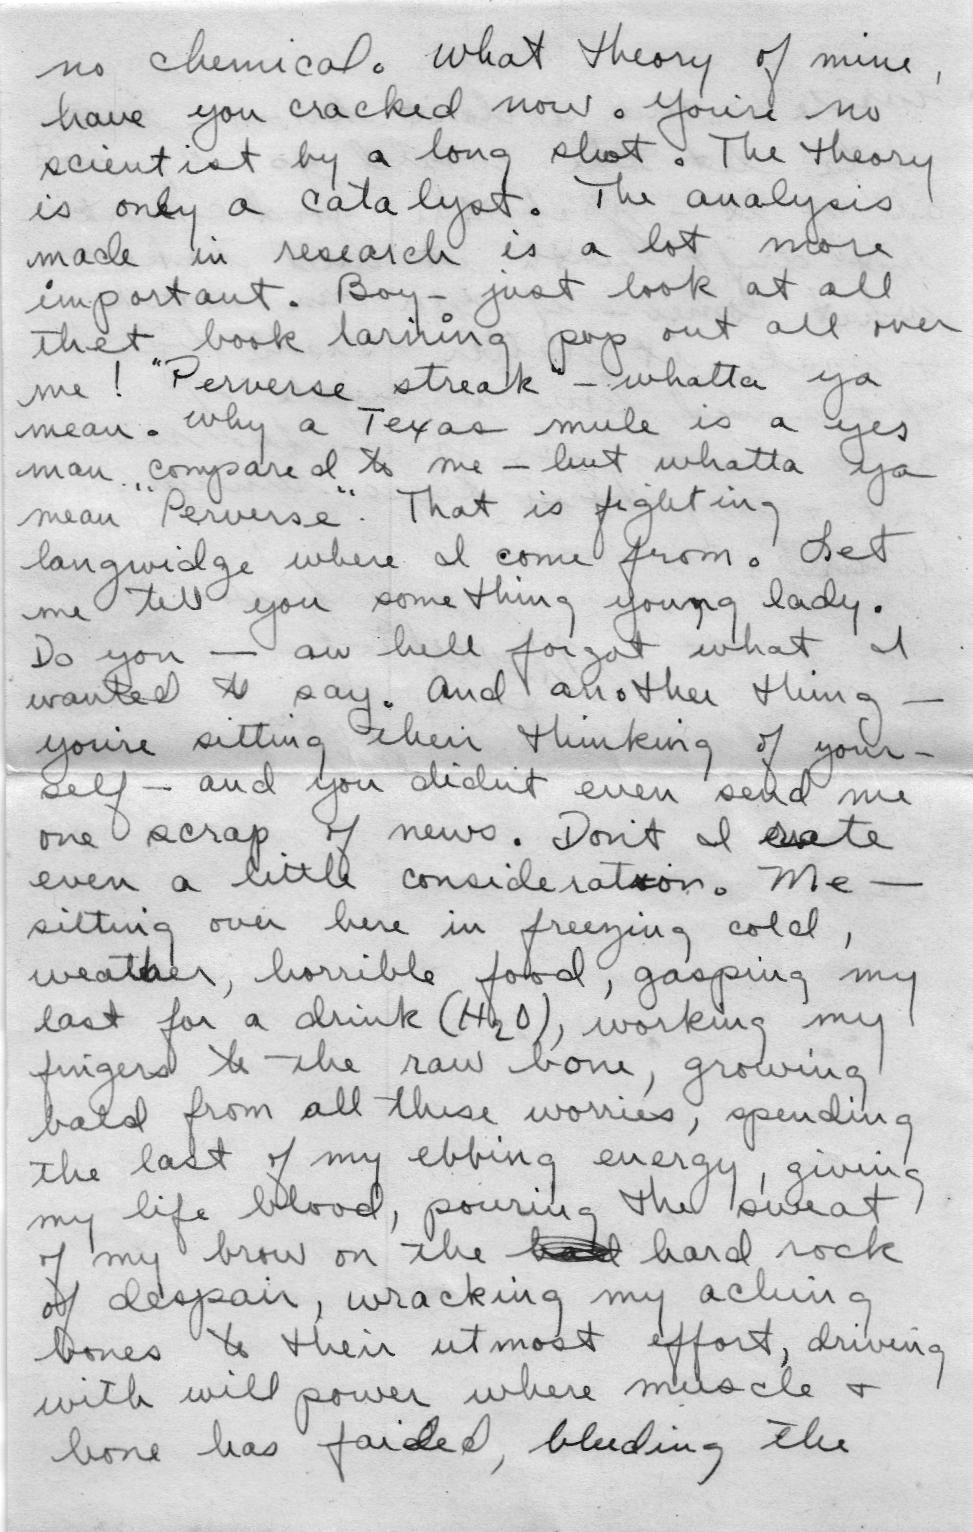 no chemical. What theory of mine,
have you cracked now. You're no
scientist by a long shot. The theory
is only a catalyst. The analysis
made in research is a lot more
important. Boy - just look at all
thet book larning pop out all over
me! "Perverse streak" - whatta ya
mean. Why a Texas mule is a yes
man compared to me - but whatta ya
mean "Perverse". That is fighting
langwidge where I come from. Let
me tell you something young lady.
Do you — aw hell forgot what I
wanted to say. And another thing —
you're sitting their thinking of your-
self - and you didn't even send me
one scrap of news. Don't I rate
even a little consideration. Me —
sitting over here in freezing cold,
weather, horrible food, gasping my
last for a drink (H2O), working my
fingers to the raw bone, growing
bald from all these worries, spending
the last of my ebbing energy, giving
my life blood, pouring the sweat
of my brow on the hard rock
of despair, wracking my aching
bones to their utmost effort, driving
with will power where muscle +
bone has failed, bleeding the